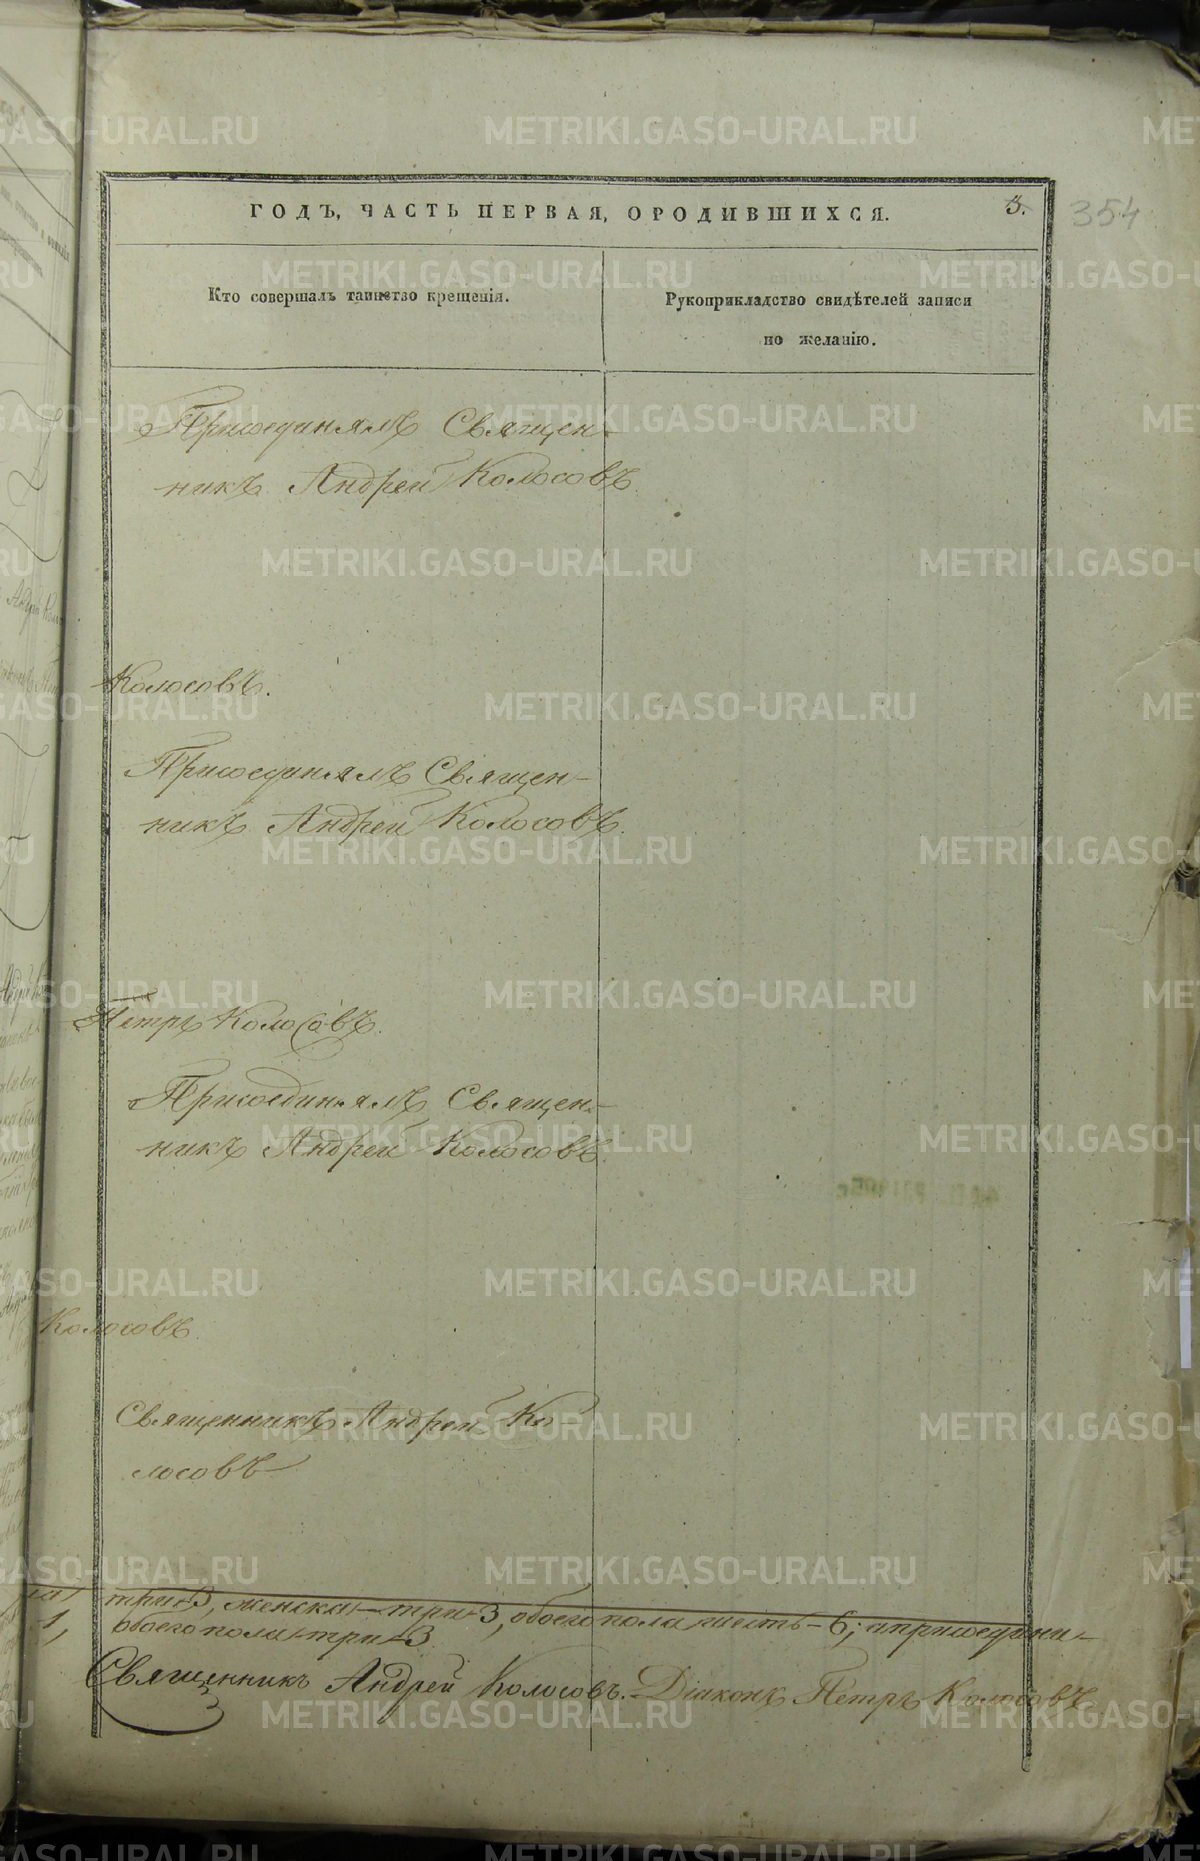 ГОДЪ, ЧАСТЬ ПЕРВАЯ, ОРОДИВШИХСЯ.
3.
354
Кто совершалъ таинство крещенія.
Рукоприкладство свидѣтелей записи
по желанію.
Присоединялъ Священ-
никъ Андрей Колосовъ.
Колосовъ.
Присоединялъ Священ-
никъ Андрей Колосовъ.
Петръ Колосовъ.
Присоединялъ Священ-
никъ Андрей Колосовъ.
Колосовъ.
Священникъ Андрей Ко-
лосовъ
три-3, женска-три-3, обоего пола шесть-6; априсоедине-
1, обоего пола три-3
Священникъ Андрей Колосовъ. Діаконъ Петръ Колосовъ
METRIKI.GASO-URAL.RU